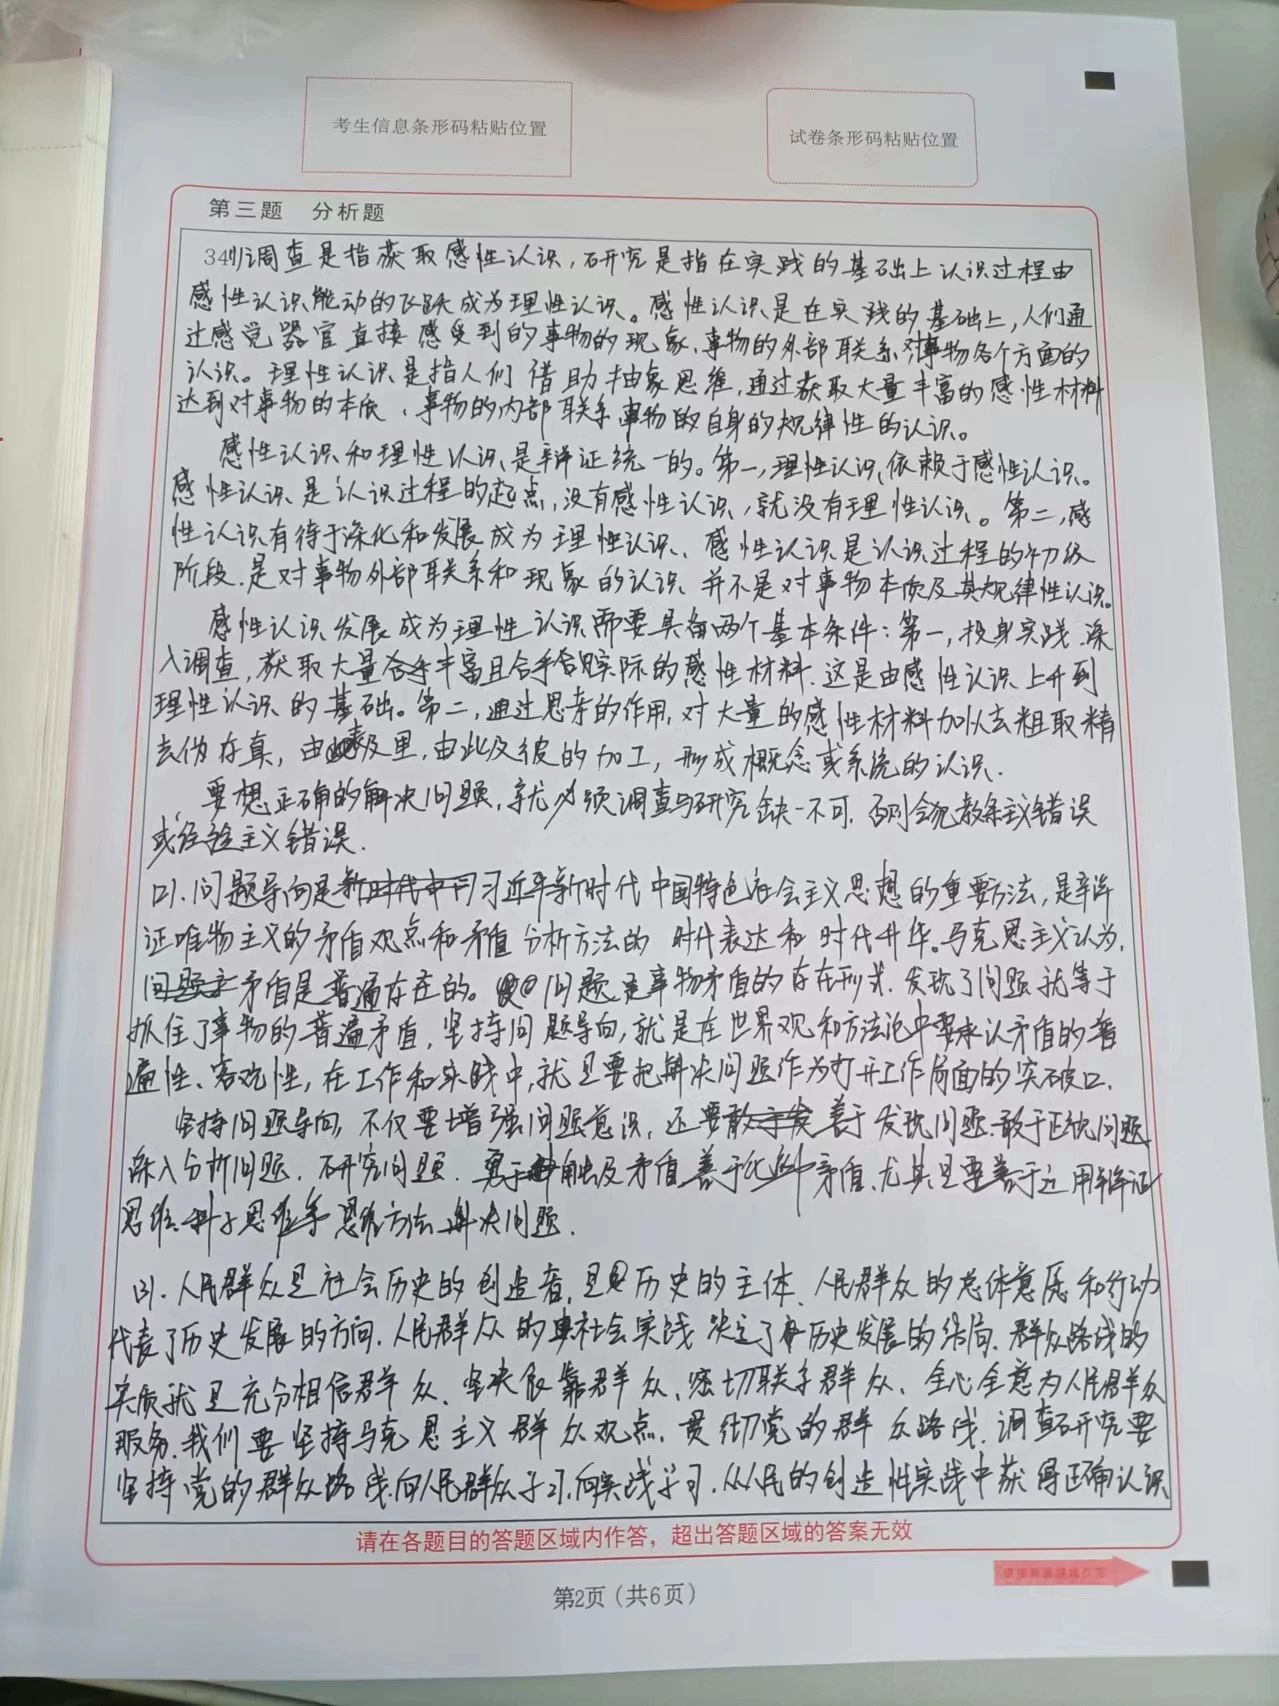 考生信息条形码粘贴位置
试卷条形码粘贴位置
第三题 分析题
34(1)调查是指获取感性认识,研究是指在实践的基础上认识过程由
感性认识能动的飞跃成为理性认识。感性认识是在实践的基础上,人们通
过感觉器官直接感受到的事物的现象、事物的外部联系、对事物各个方面的
认识。理性认识是指人们借助抽象思维,通过获取大量丰富的感性材料
达到对事物的本质、事物的内部联系、事物的自身的规律性的认识。
感性认识和理性认识是辩证统一的。第一,理性认识依赖于感性认识。
感性认识是认识过程的起点,没有感性认识,就没有理性认识。第二,感
性认识有待于深化和发展成为理性认识、感性认识是认识过程的初级
阶段.是对事物外部联系和现象的认识、并不是对事物本质及其规律性认识。
感性认识发展成为理性认识需要具备两个基本条件:第一,投身实践.深
入调查,获取大量丰富且合乎实际的感性材料.这是由感性认识上升到
理性认识的基础。第二,通过思考的作用,对大量的感性材料加以去粗取精
去伪存真,由表及里,由此及彼的加工,形成概念或系统的认识.
要想正确的解决问题,就必须调查与研究缺一不可,否则会犯教条主义错误
或经验主义错误.
(2).问题导向是习近平新时代中国特色社会主义思想的重要方法,是辩
证唯物主义的矛盾观点和矛盾分析方法的 时代表达和时代升华.马克思主义认为,
矛盾是普遍存在的。问题是事物矛盾的存在形式.发现了问题就等于
抓住了事物的普遍矛盾,坚持问题导向,就是在世界观和方法论中要承认矛盾的普
遍性、客观性,在工作和实践中,就是要把解决问题作为打开工作局面的突破口.
坚持问题导向,不仅要增强问题意识,还要善于发现问题.敢于正视问题
深入分析问题.研究问题.勇于触及矛盾 善于化解矛盾.尤其是要善于运用辩证
思维、科学思维等思维方法解决问题.
(3).人民群众是社会历史的创造者,是历史的主体.人民群众的总体意愿和行动
代表了历史发展的方向.人民群众的社会实践决定了历史发展的结局.群众路线的
实质就是充分相信群众、坚决依靠群众、密切联系群众、全心全意为人民群众
服务.我们要坚持马克思主义群众观点,贯彻党的群众路线.调查研究要
坚持党的群众路线,向人民群众学习,向实践学习.从人民的创造性实践中获得正确认识
请在各题目的答题区域内作答,超出答题区域的答案无效
第2页(共6页)